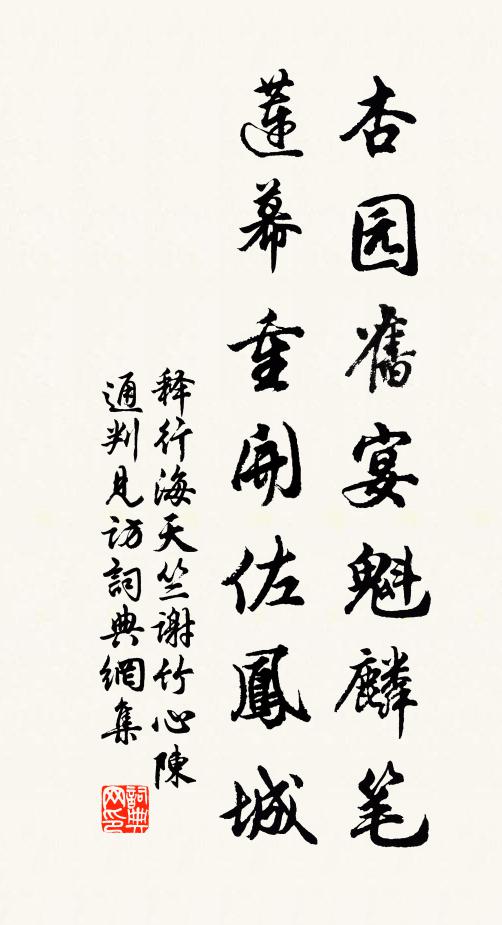 杏园舊宴魁麟笔
蓮幕重開佐鳳城
释行海天竺谢竹心陳
通判見访詞典網集
詞典网印